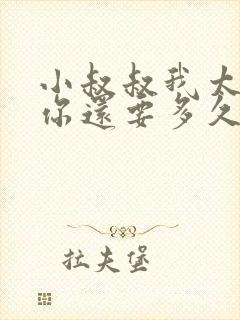 小叔叔我大
你還要多久
拉夫堡